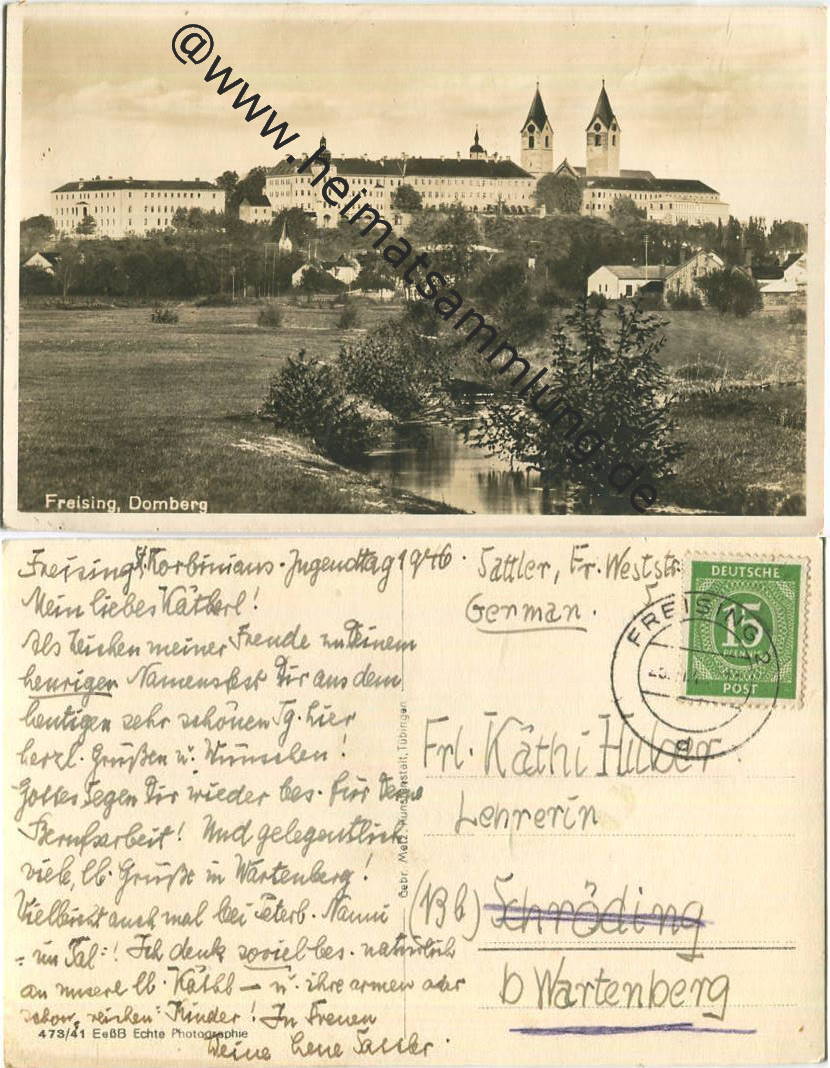 @www.heimatsammlung.de
Freising, Domberg
Freising St. Korbinians-Jugendtag 1946.
Mein liebes Kätherl!
Als Zeichen meiner Freude zu Deinem
heurigen Namensfest Dir aus dem
heutigen sehr schönen Tg. hier
herzl. Grüßen u. Wünschen!
Gottes Segen Dir wieder bes. für Deine
Berufsarbeit! Und gelegentlich
viele, lb. Grüße in Wartenberg!
Vielleicht auch mal bei Peterb. Nanni
- im Tal-! Ich denk soviel bes. natürlich
an unsere lb. Käthl — u. ihre armen oder
schon, reichen Kinder! In Treuen
Deine Lene Sattler.
473/41 EeßB Echte Photographie
Gebr. Metz, Kunstanstalt, Tübingen
Sattler, Fr. Weststr.
German.
DEUTSCHE
15
PFENNIG
POST
FREISING 2
d
Frl. Käthi Huber
Lehrerin
(13b) Schröding
b Wartenberg